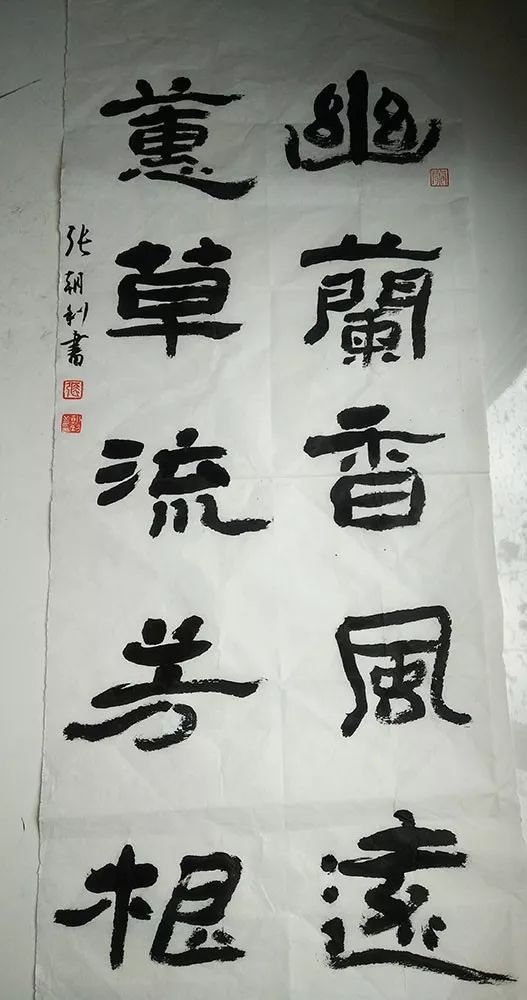 幽蘭香風遠
蕙草流芳根
張朝利書